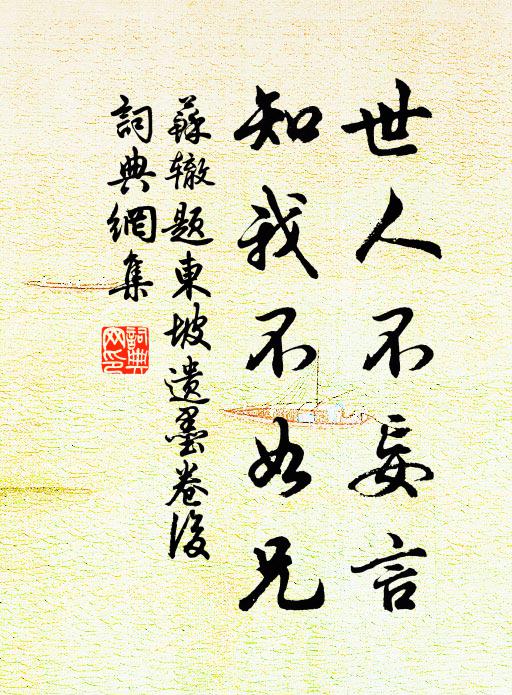 世人不妄言
知我不如兄
蘇轍題東坡遺墨卷後
詞典網集
詞典
网印